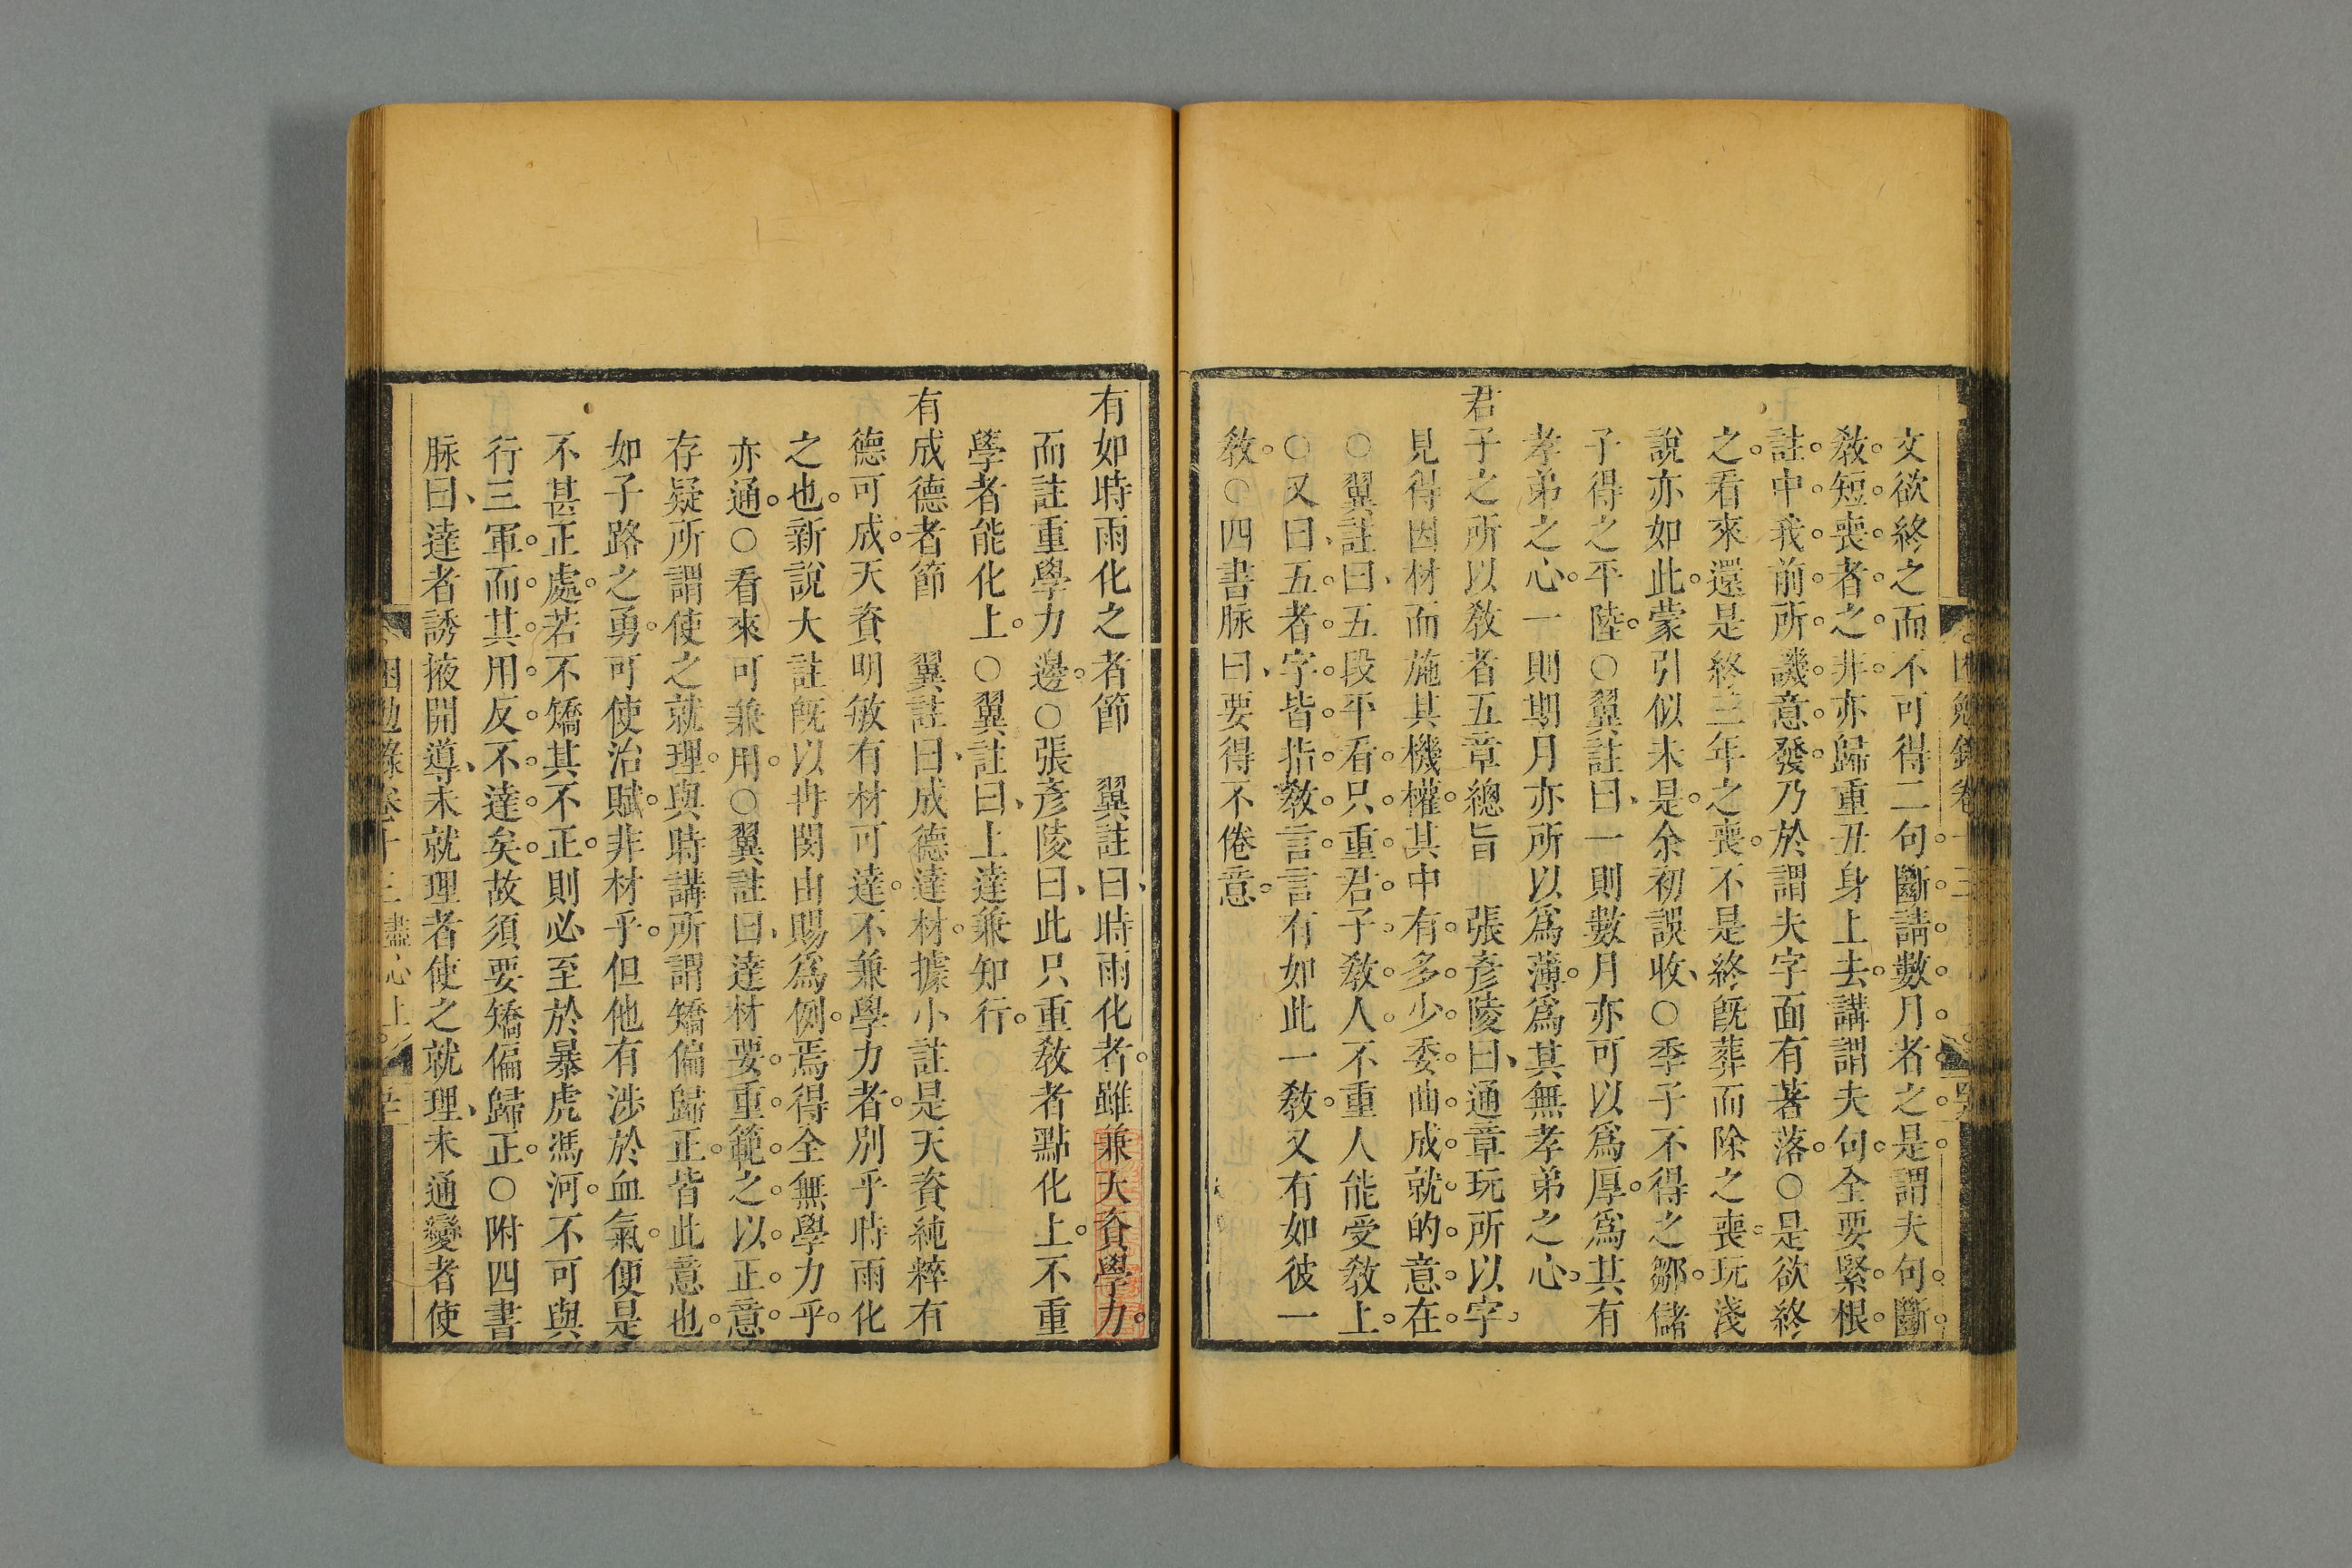 文欲終之而不可得二句斷請數月者之是謂夫句斷
教短喪者之非亦歸重丑身上去講謂夫句全要緊根
註中我前所譏意發乃於謂夫字面有著落○是欲終
之看來還是終三年之喪不是終旣葬而除之喪玩淺
說亦如此蒙引似未是余初誤收○季子不得之鄒儲
子得之平陸○翼註曰一則數月亦可以爲厚爲其有
孝弟之心一則期月亦所以爲薄爲其無孝弟之心
君子之所以敎者五章總旨 張彥陵曰通章玩所以字
見得因材而施其機權其中有多少委曲成就的意在
○翼註曰五段平看只重君子敎人不重人能受敎上
○又曰五者字皆指敎言言有如此一敎又有如彼一
敎○四書脉曰要得不倦意
有如時雨化之者節 翼註曰時雨化者雖兼天資學力
而註重學力邊○張彥陵曰此只重敎者點化上不重
學者能化上○翼註曰上達兼知行
有成德者節 翼註曰成德達材據小註是天資純粹有
德可成天資明敏有材可達不兼學力者別乎時雨化
之也新說大註旣以冉閔由賜爲例焉得全無學力乎
亦通○看來可兼用○翼註曰達材要重範之以正意
存疑所謂使之就理與時講所謂矯偏歸正皆此意也
如子路之勇可使治賦非材乎但他有涉於血氣便是
不甚正處若不矯其不正則必至於暴虎馮河不可與
行三軍而其用反不達矣故須要矯偏歸正○附四書
脉曰達者誘掖開導未就理者使之就理未通變者使
困勉錄卷十三 盡心上